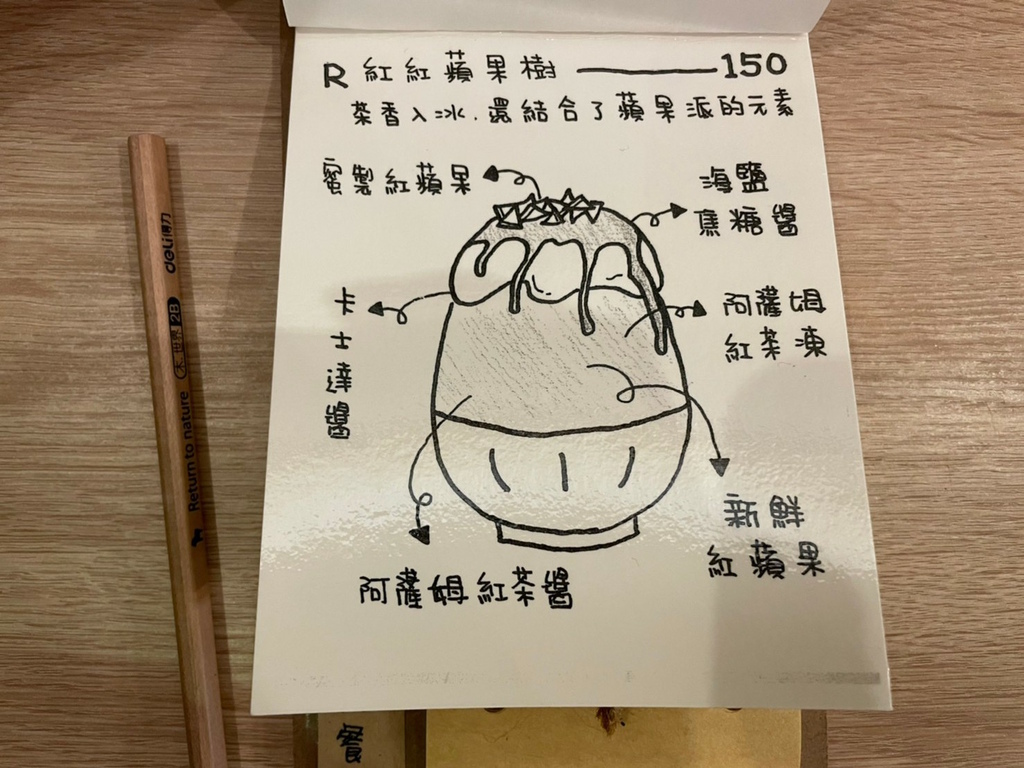 R 紅紅蘋果樹 ——— 150
茶香入冰.還結合了蘋果派的元素
蜜製紅蘋果
海鹽
焦糖醬
卡士達醬
阿薩姆
紅茶凍
新鮮
紅蘋果
阿薩姆紅茶醬
餐
deli得力
大世紀 2B
Return to nature